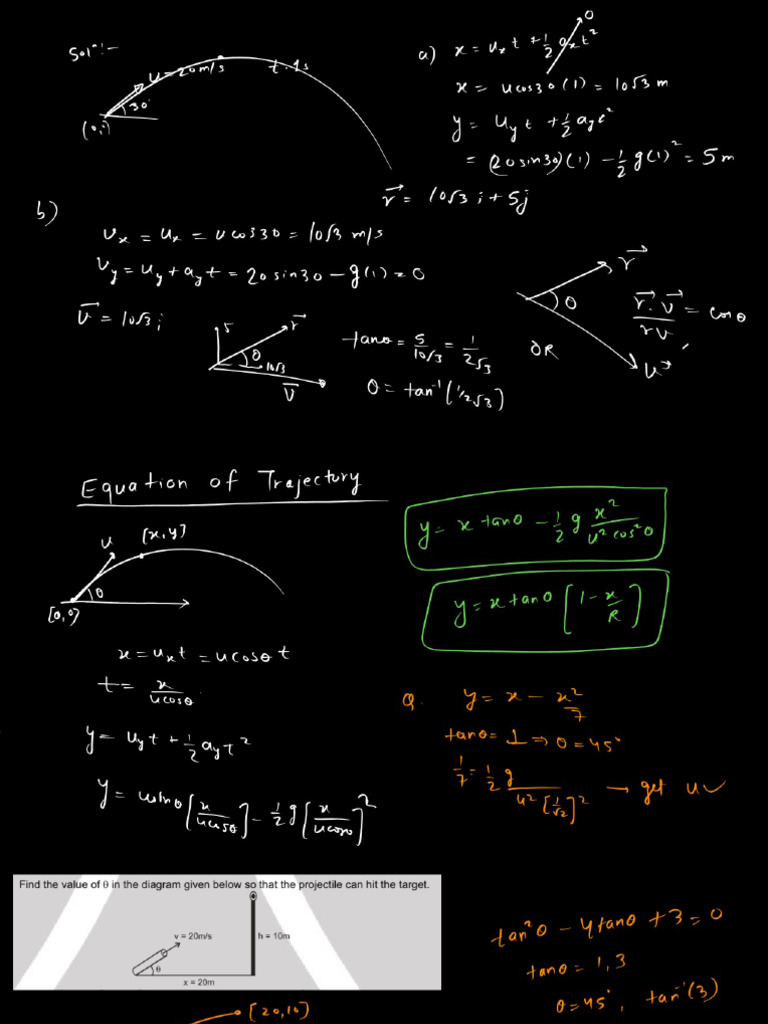 Solⁿ:-
u = 20m/s
t = 1s
30°
(0,0)
a) x = uₓt + ½aₓt² 0
x = ucos30(1) = 10√3 m
y = u_y t + ½ a_y t²
= (20sin30)(1) - ½ g(1)² = 5m
r⃗ = 10√3 i + 5j
b)
vₓ = uₓ = ucos30 = 10√3 m/s
v_y = u_y + a_y t = 20sin30 - g(1) = 0
v⃗ = 10√3 i
5
r⃗
θ
10√3
v⃗
tanθ = 5/10√3 = 1/2√3
θ = tan⁻¹(1/2√3)
OR
r⃗
θ
r⃗.v⃗/rv = cosθ
Equation of Trajectory
u
(x,y)
θ
(0,0)
y = x tanθ - ½ g x²/u²cos²θ
y = x tanθ [1 - x/R]
x = uₓt = ucosθ t
t = x/ucosθ
y = u_y t + ½ a_y t²
y = usinθ [x/ucosθ] - ½ g [x/ucosθ]²
Q. y = x - x²/7
tanθ = 1 ⇒ θ = 45°
1/7 = ½ g/u²[1/√2]² → get u ✓
Find the value of θ in the diagram given below so that the projectile can hit the target.
v = 20m/s
h = 10m
θ
x = 20m
[20,10]
tan²θ - 4tanθ + 3 = 0
tanθ = 1,3
θ = 45°, tan⁻¹(3)